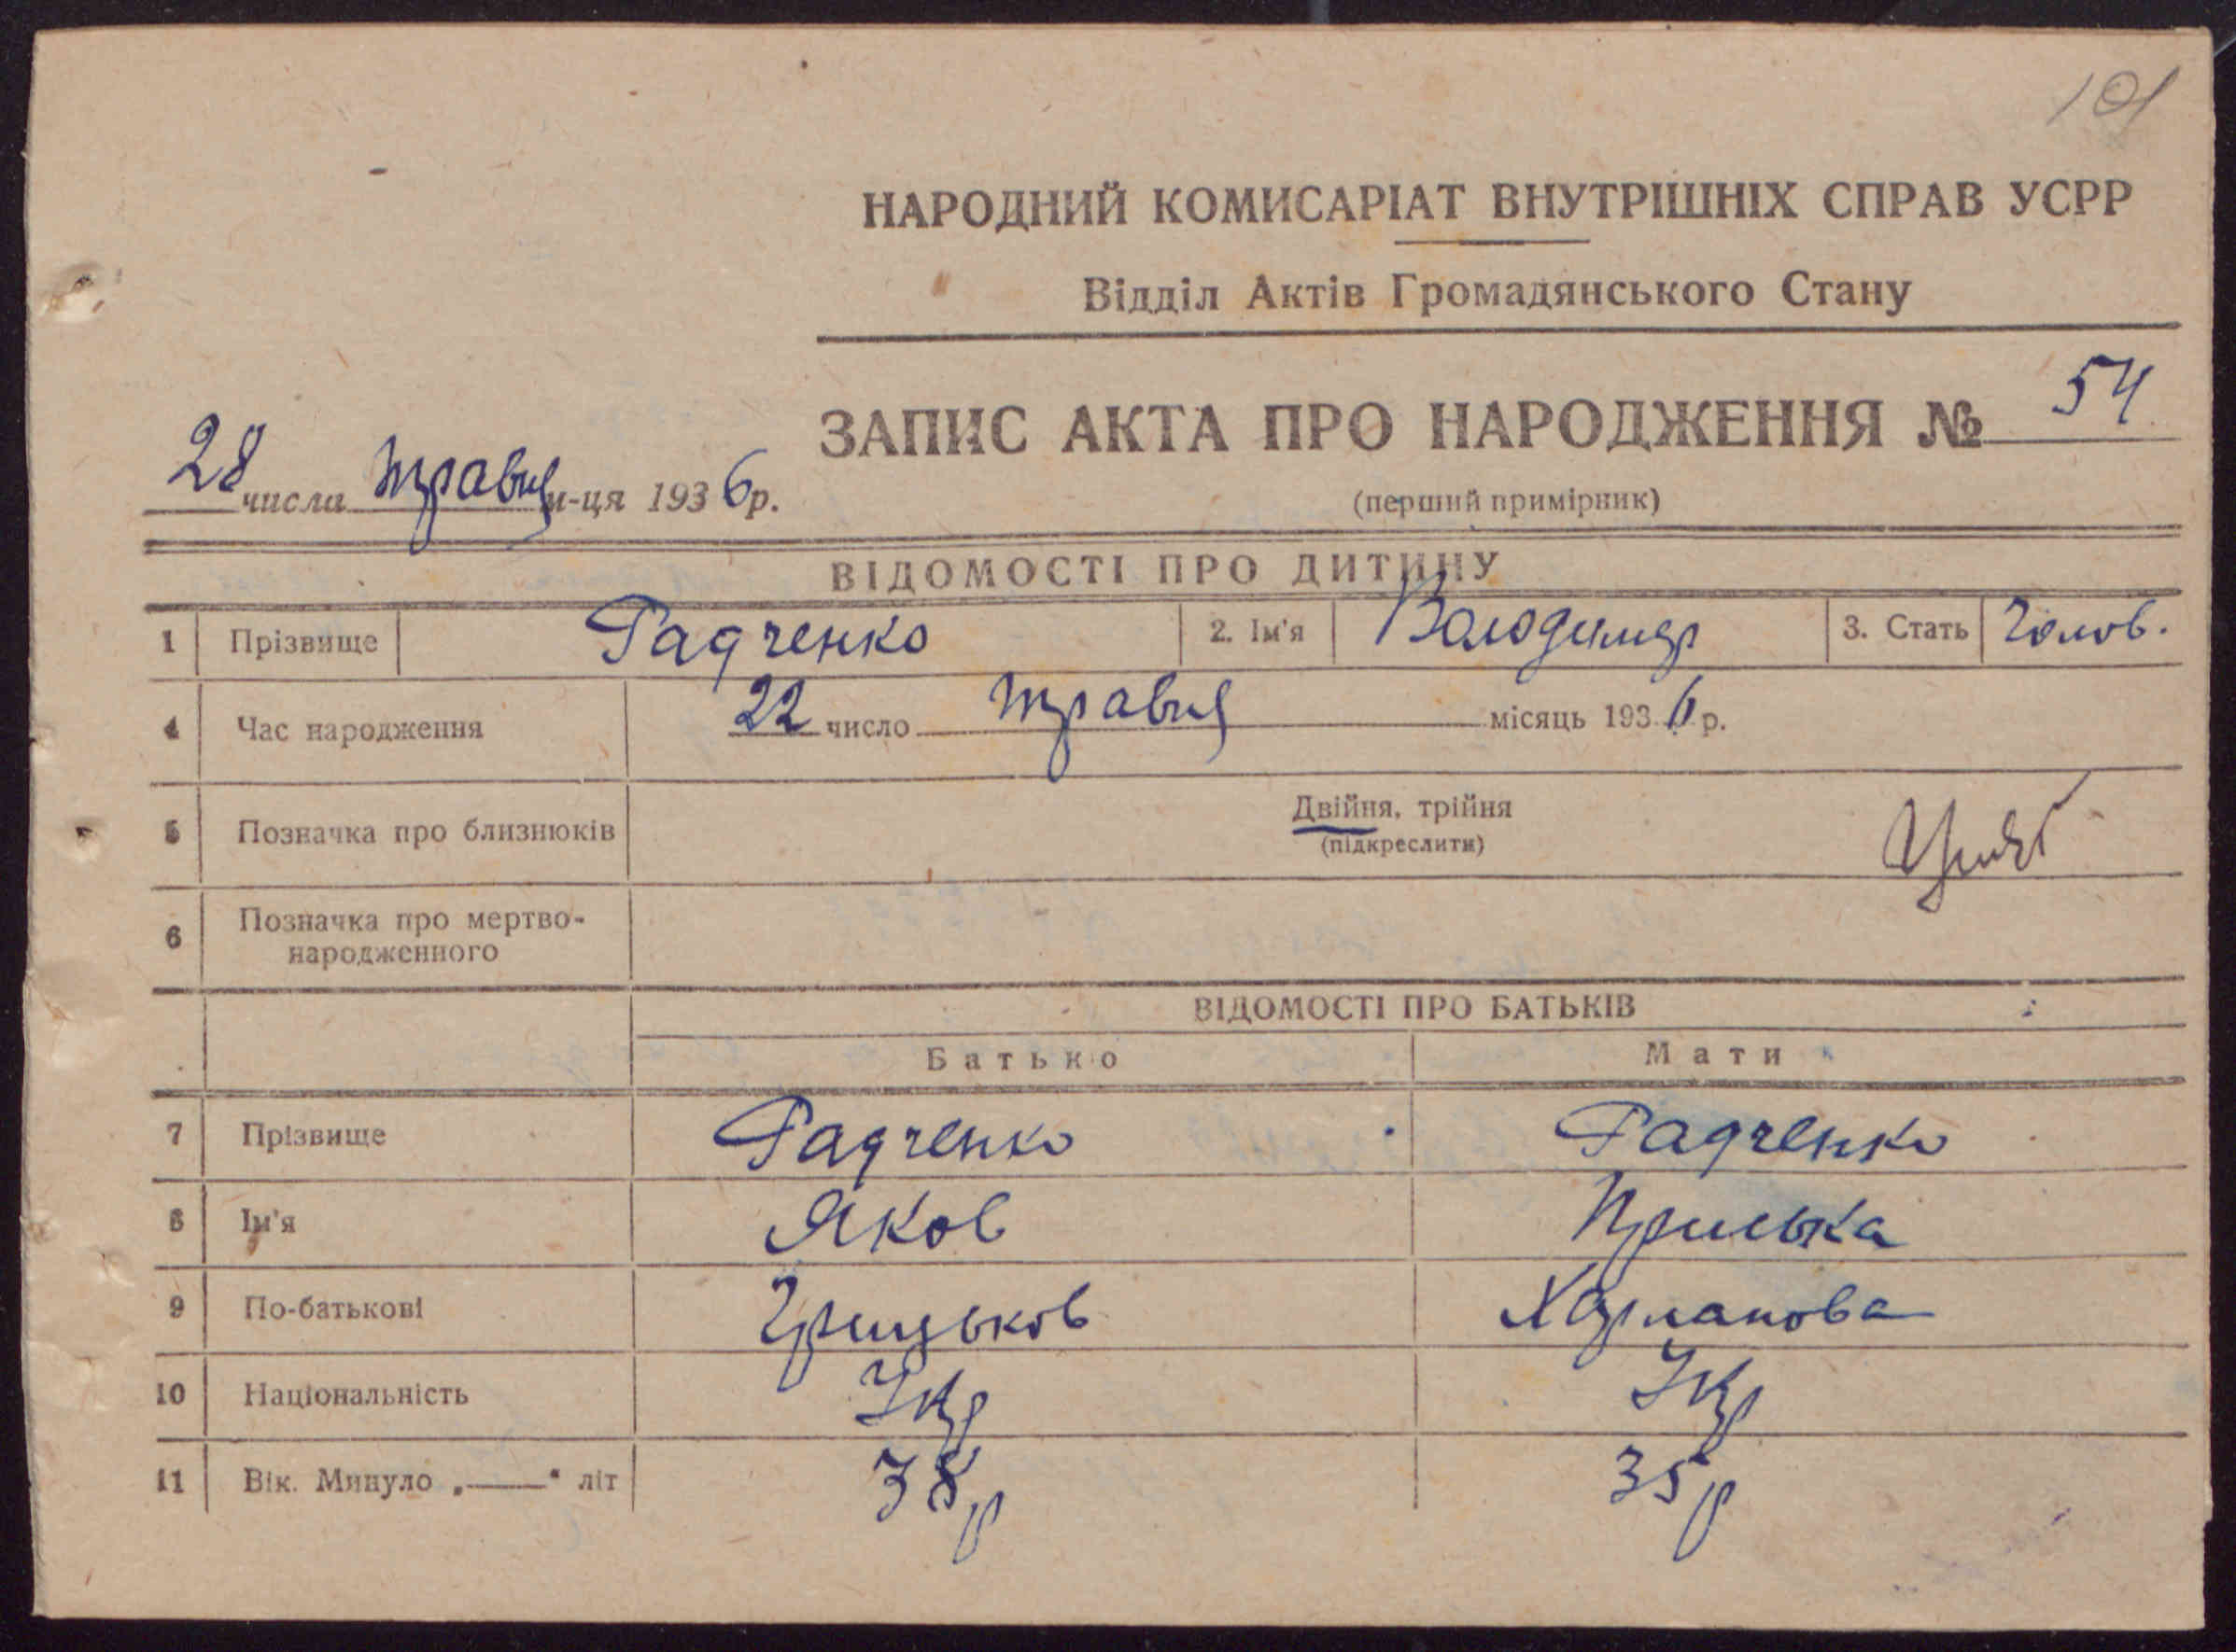 101
НАРОДНИЙ КОМИСАРІАТ ВНУТРІШНІХ СПРАВ УСРР
Відділ Актів Громадянського Стану
ЗАПИС АКТА ПРО НАРОДЖЕННЯ № 54
28 числа травня м-ця 1936 р.
(перший примірник)
ВІДОМОСТІ ПРО ДИТИНУ
1 Прізвище Радченко 2. Ім'я Володимир 3. Стать Чолов.
4 Час народження 22 число травня місяць 1936 р.
5 Позначка про близнюків Двійня, трійня
(підкреслити)
6 Позначка про мертво-
народженного
ВІДОМОСТІ ПРО БАТЬКІВ
Батько Мати
7 Прізвище Радченко Радченко
8 Ім'я Яков Приська
9 По-батькові Грицьков Харланова
10 Національність Укр Укр
11 Вік. Минуло „——“ літ 38 р 35 р